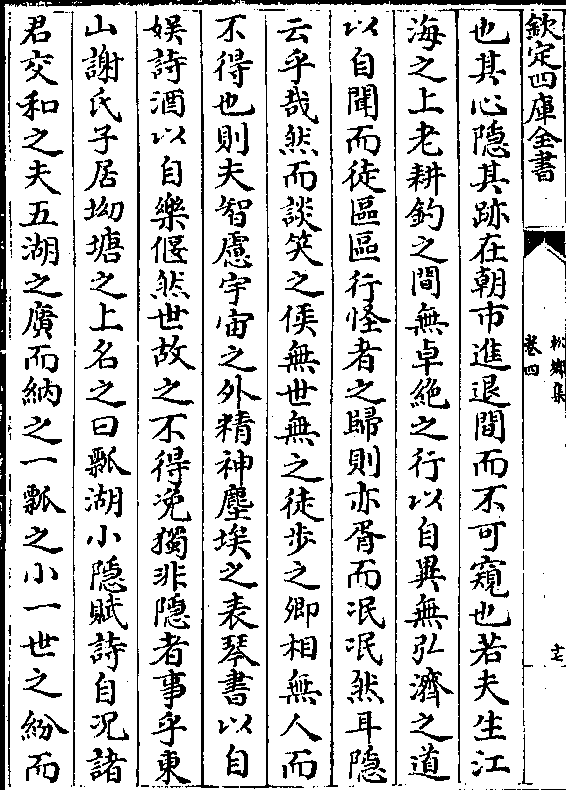 欽定四庫全書
松鄉集
卷四
十七
也其心隱其跡在朝市進退間而不可窺也若夫生江
海之上老耕釣之間無卓絶之行以自異無弘濟之道
以自聞而徒區區行怪者之歸則亦胥而泯泯然耳隱
云乎哉然而談笑之侯無世無之徒步之卿相無人而
不得也則夫智慮宇宙之外精神塵埃之表琴書以自
娛詩酒以自樂偃然世故之不得浼獨非隱者事乎東
山謝氏子居坳塘之上名之曰瓢湖小隱賦詩自況諸
君交和之夫五湖之廣而納之一瓢之小一世之紛而